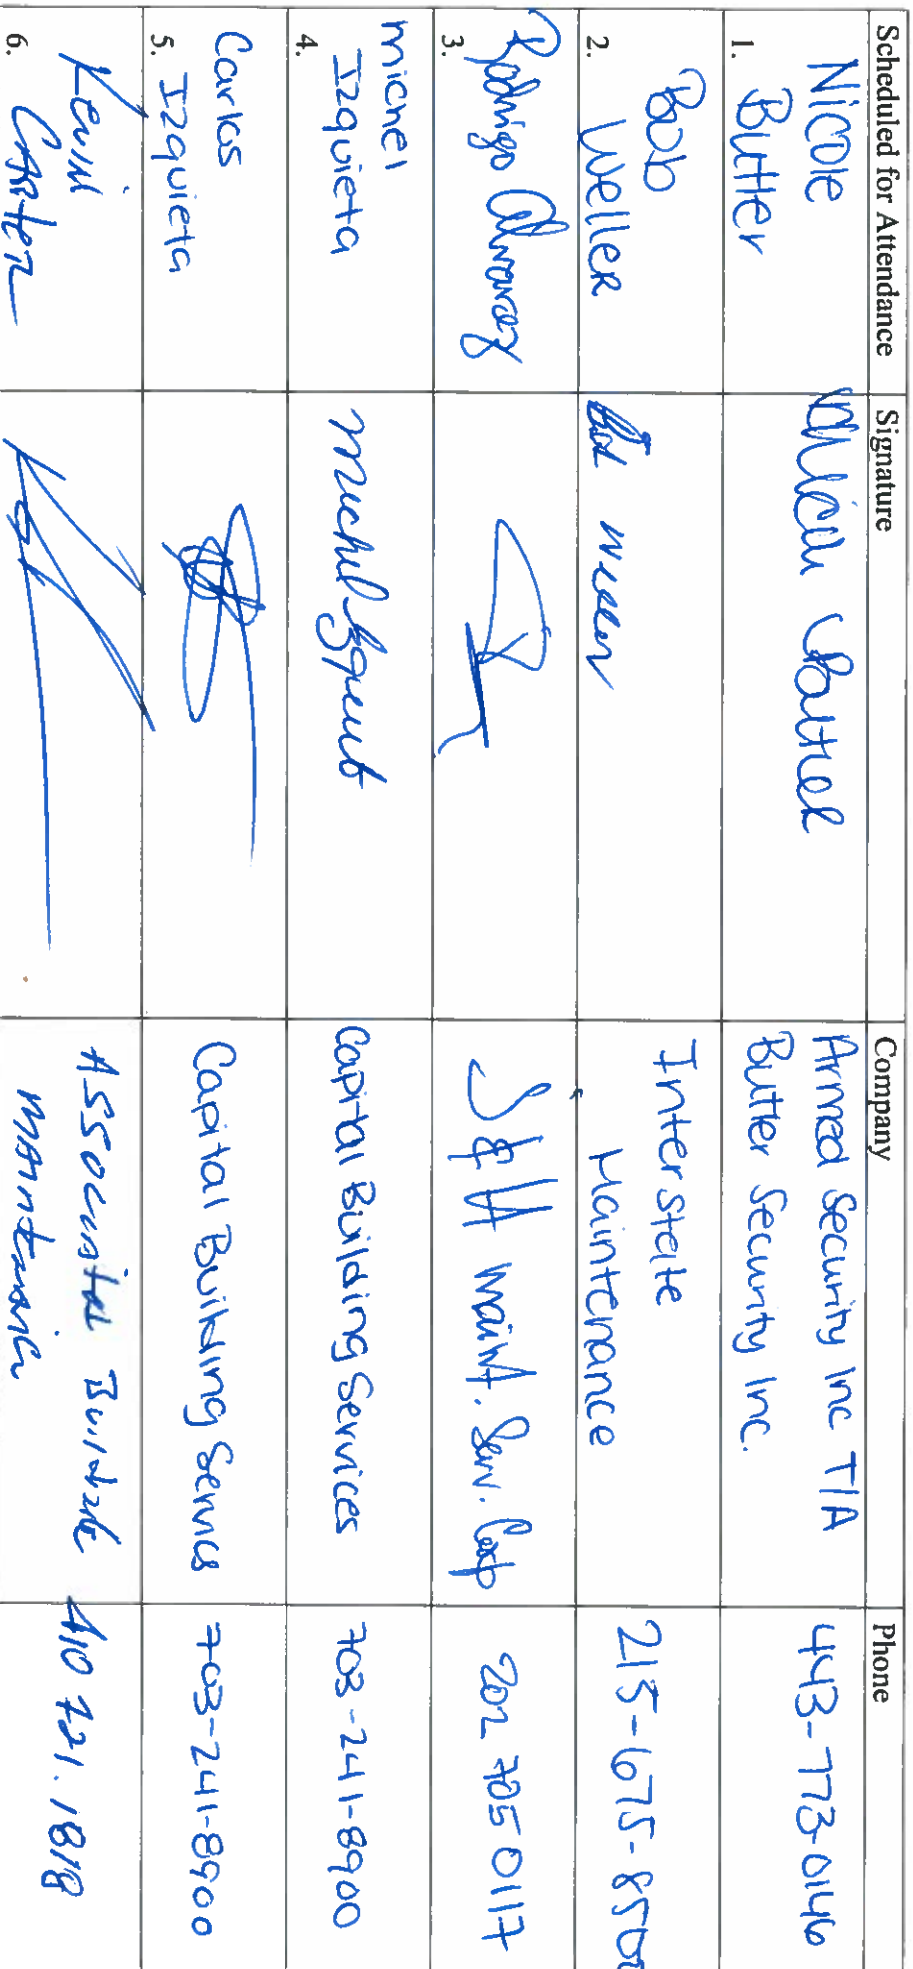 Scheduled for Attendance Signature Company Phone
Nicole
Butler
1.
Armed Security Inc T/A
Butler Security Inc.
443-773-0146
Bob
Weller
2.
Interstate
Maintenance
215-675-850
Rodrigo Alvarez
3.
S&H Maint. Serv. Corp
202 705 0117
michel
Izquieta
4.
Capital Building Services
703-241-8900
Carlos
Izquieta
5.
Capital Building Services
703-241-8900
Kevin
CARter
6.
Associated Building
Maintenance
410 721.1818